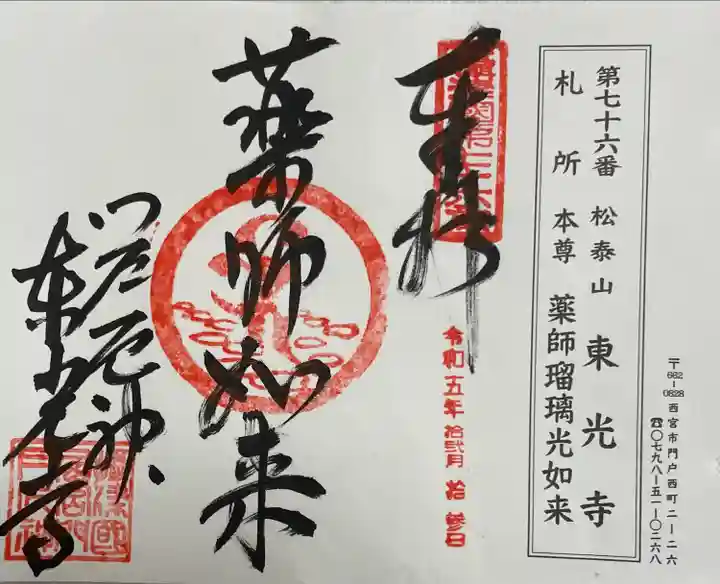 〒662-0828 西宮市門戸西町二ー二六
☎〇七九八ー五一ー〇二六八
第七十六番 松泰山 東光寺
札所 本尊 薬師瑠璃光如来
奉拝
令和五年 拾弐月 拾参日
薬師如来
門戸厄神
東光寺